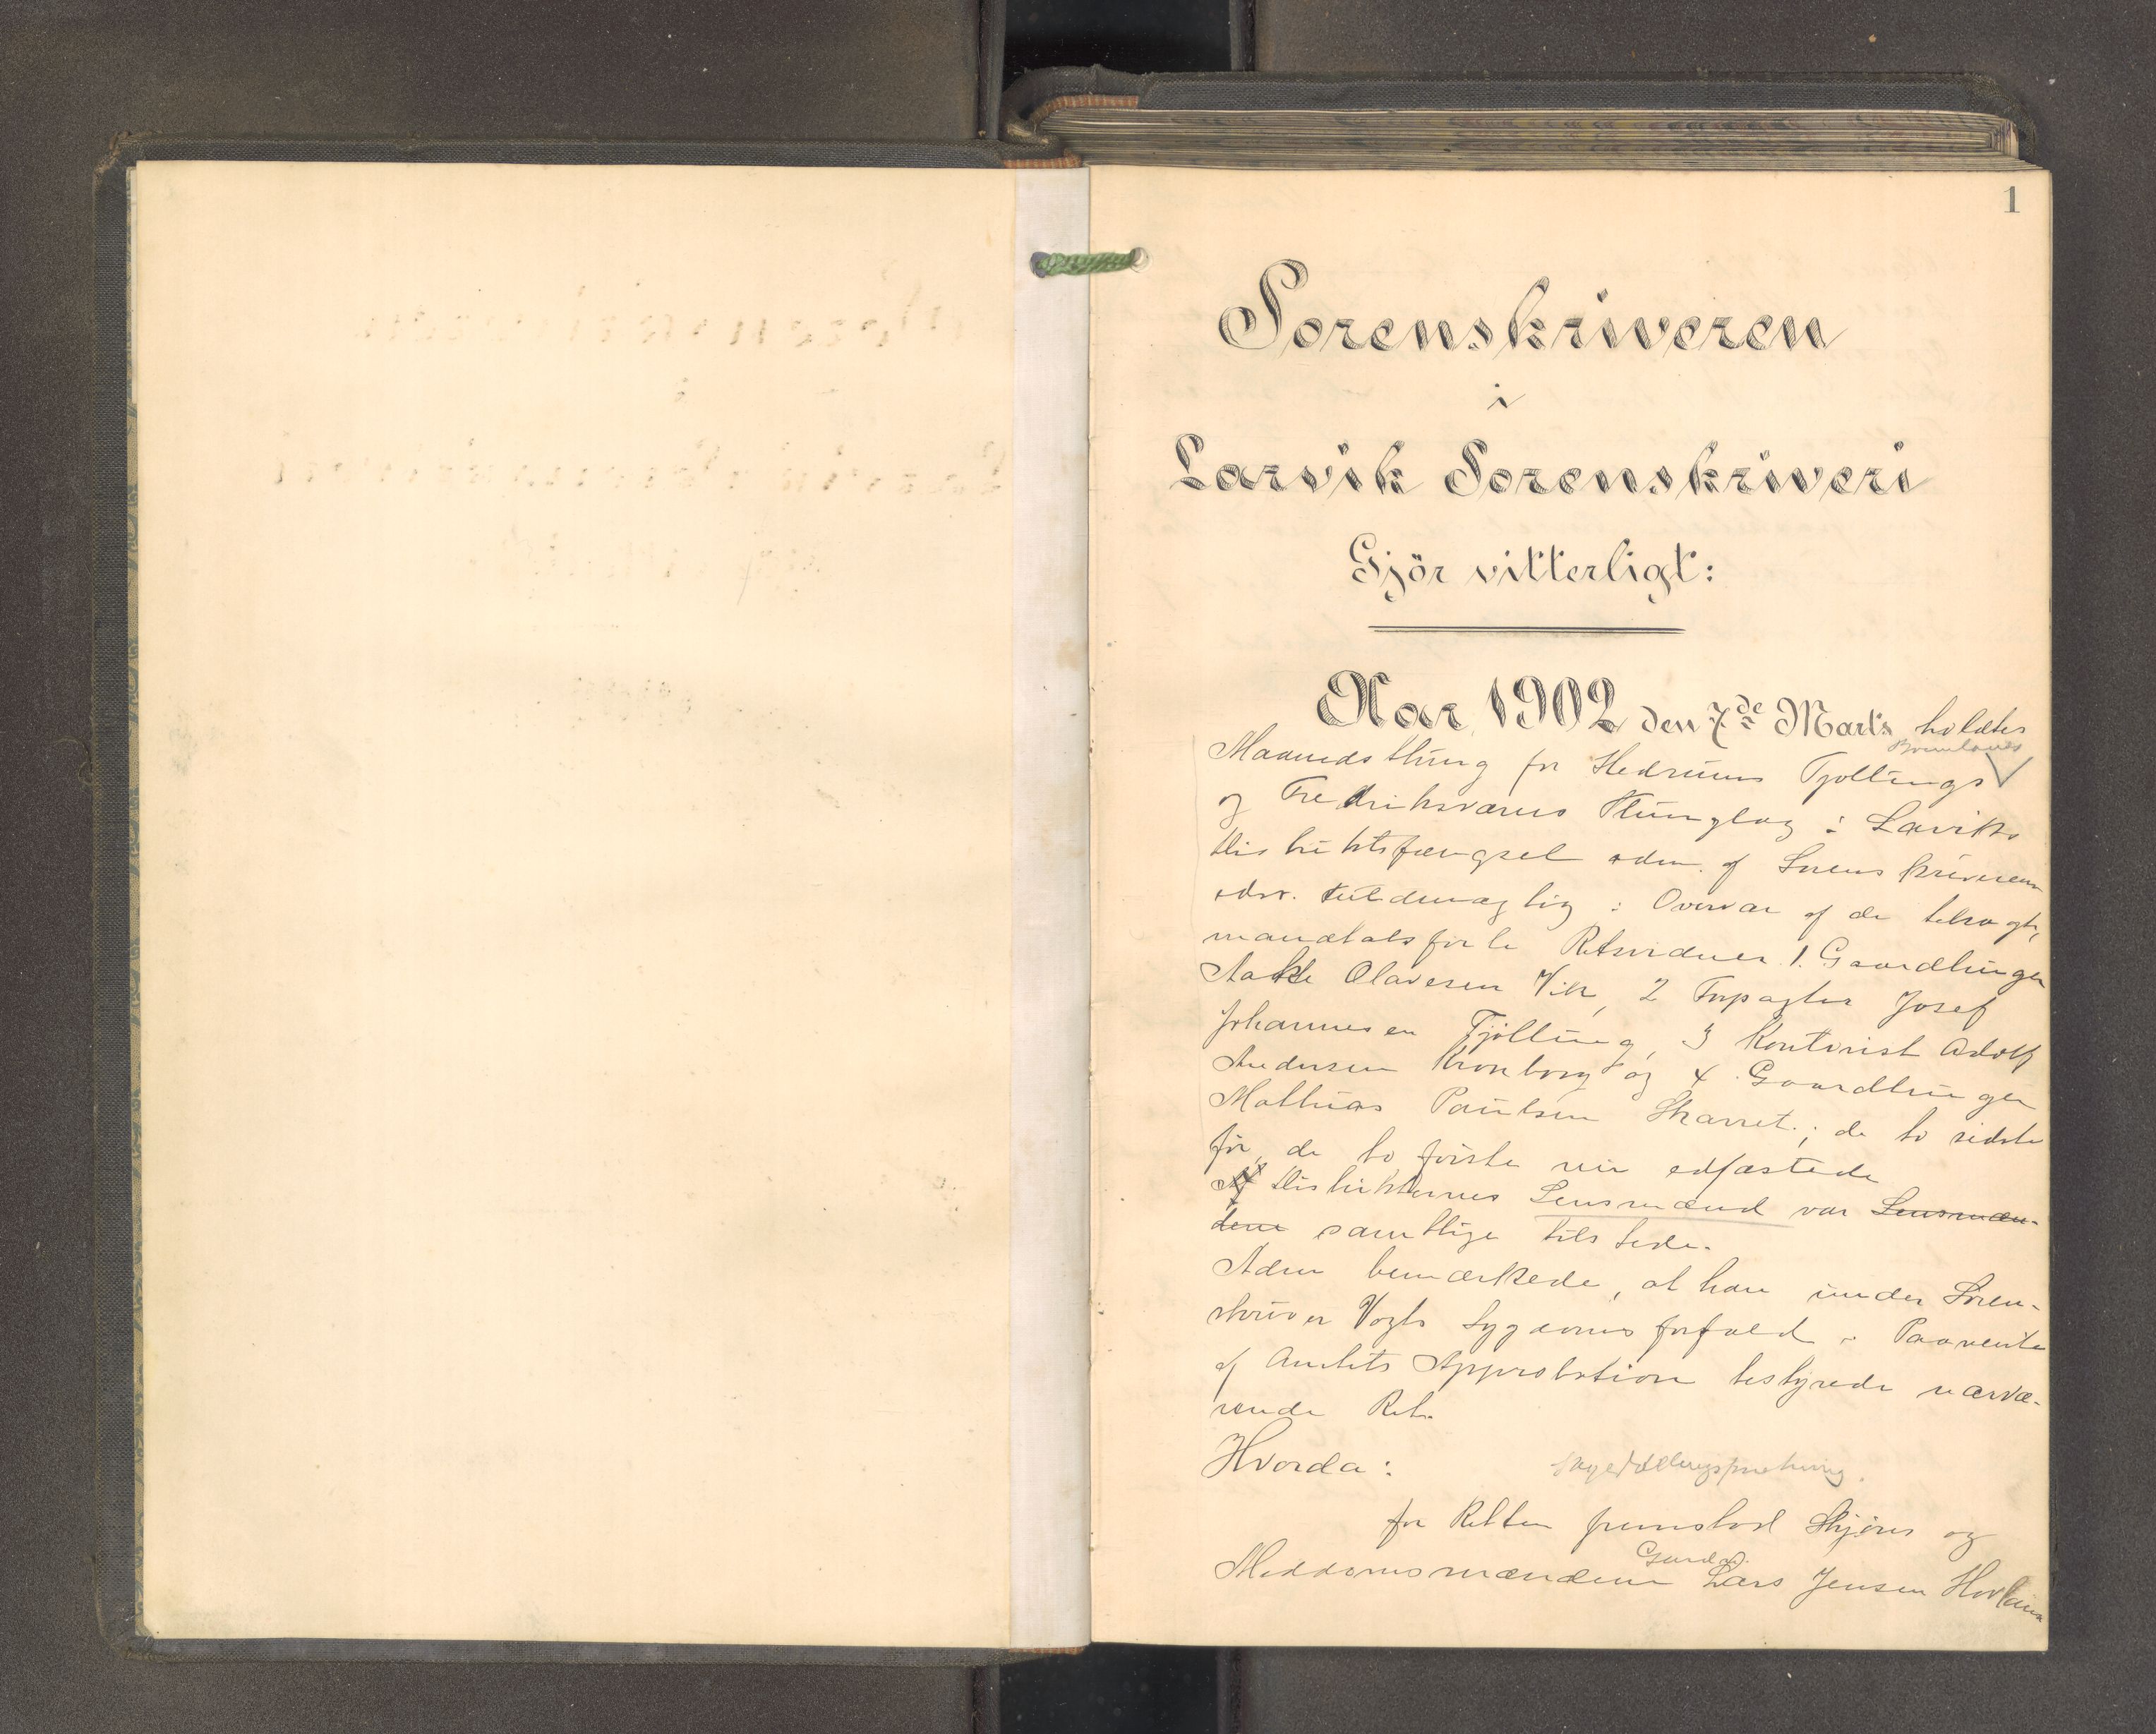 1
Sorenskriveren
i
Larvik Sorenskriveri
Gjör vitterligt:
Aar 1902 den 7de Marts holdtes
Brunlanes
Maanedsthing for Hedrums Tjøllings
og Fredriksværns Thinglag i Larviks
Distriktsfængsel adm. af Sorenskriveren
edsv. Fuldmægtig i Overvær af de tilsagte,
mandtalsførte Retsvidner 1. Gaardbruger
Olavesen Vik, 2 Forpagter Josef
Johannesen Tjølling, 3 Kontorist Adolf
Andersen Kronborg og 4 Gaardbruger
Mathias Paulsen ; de to sidste
for de to første nu edfæstede
Af Distrikternes Lensmænd var Lensmæn-
dene samtlige tilstede.
Adm bemærkede, at han under Soren-
skriver Vogts Sygdomsforfald i Paavente
af Amtets Approbation bestyrede nærvæ-
rende Ret.
Hvorda:
for Retten fremstod Skjøns og
Gaardbr.
Meddomsmændene Lars Jensen